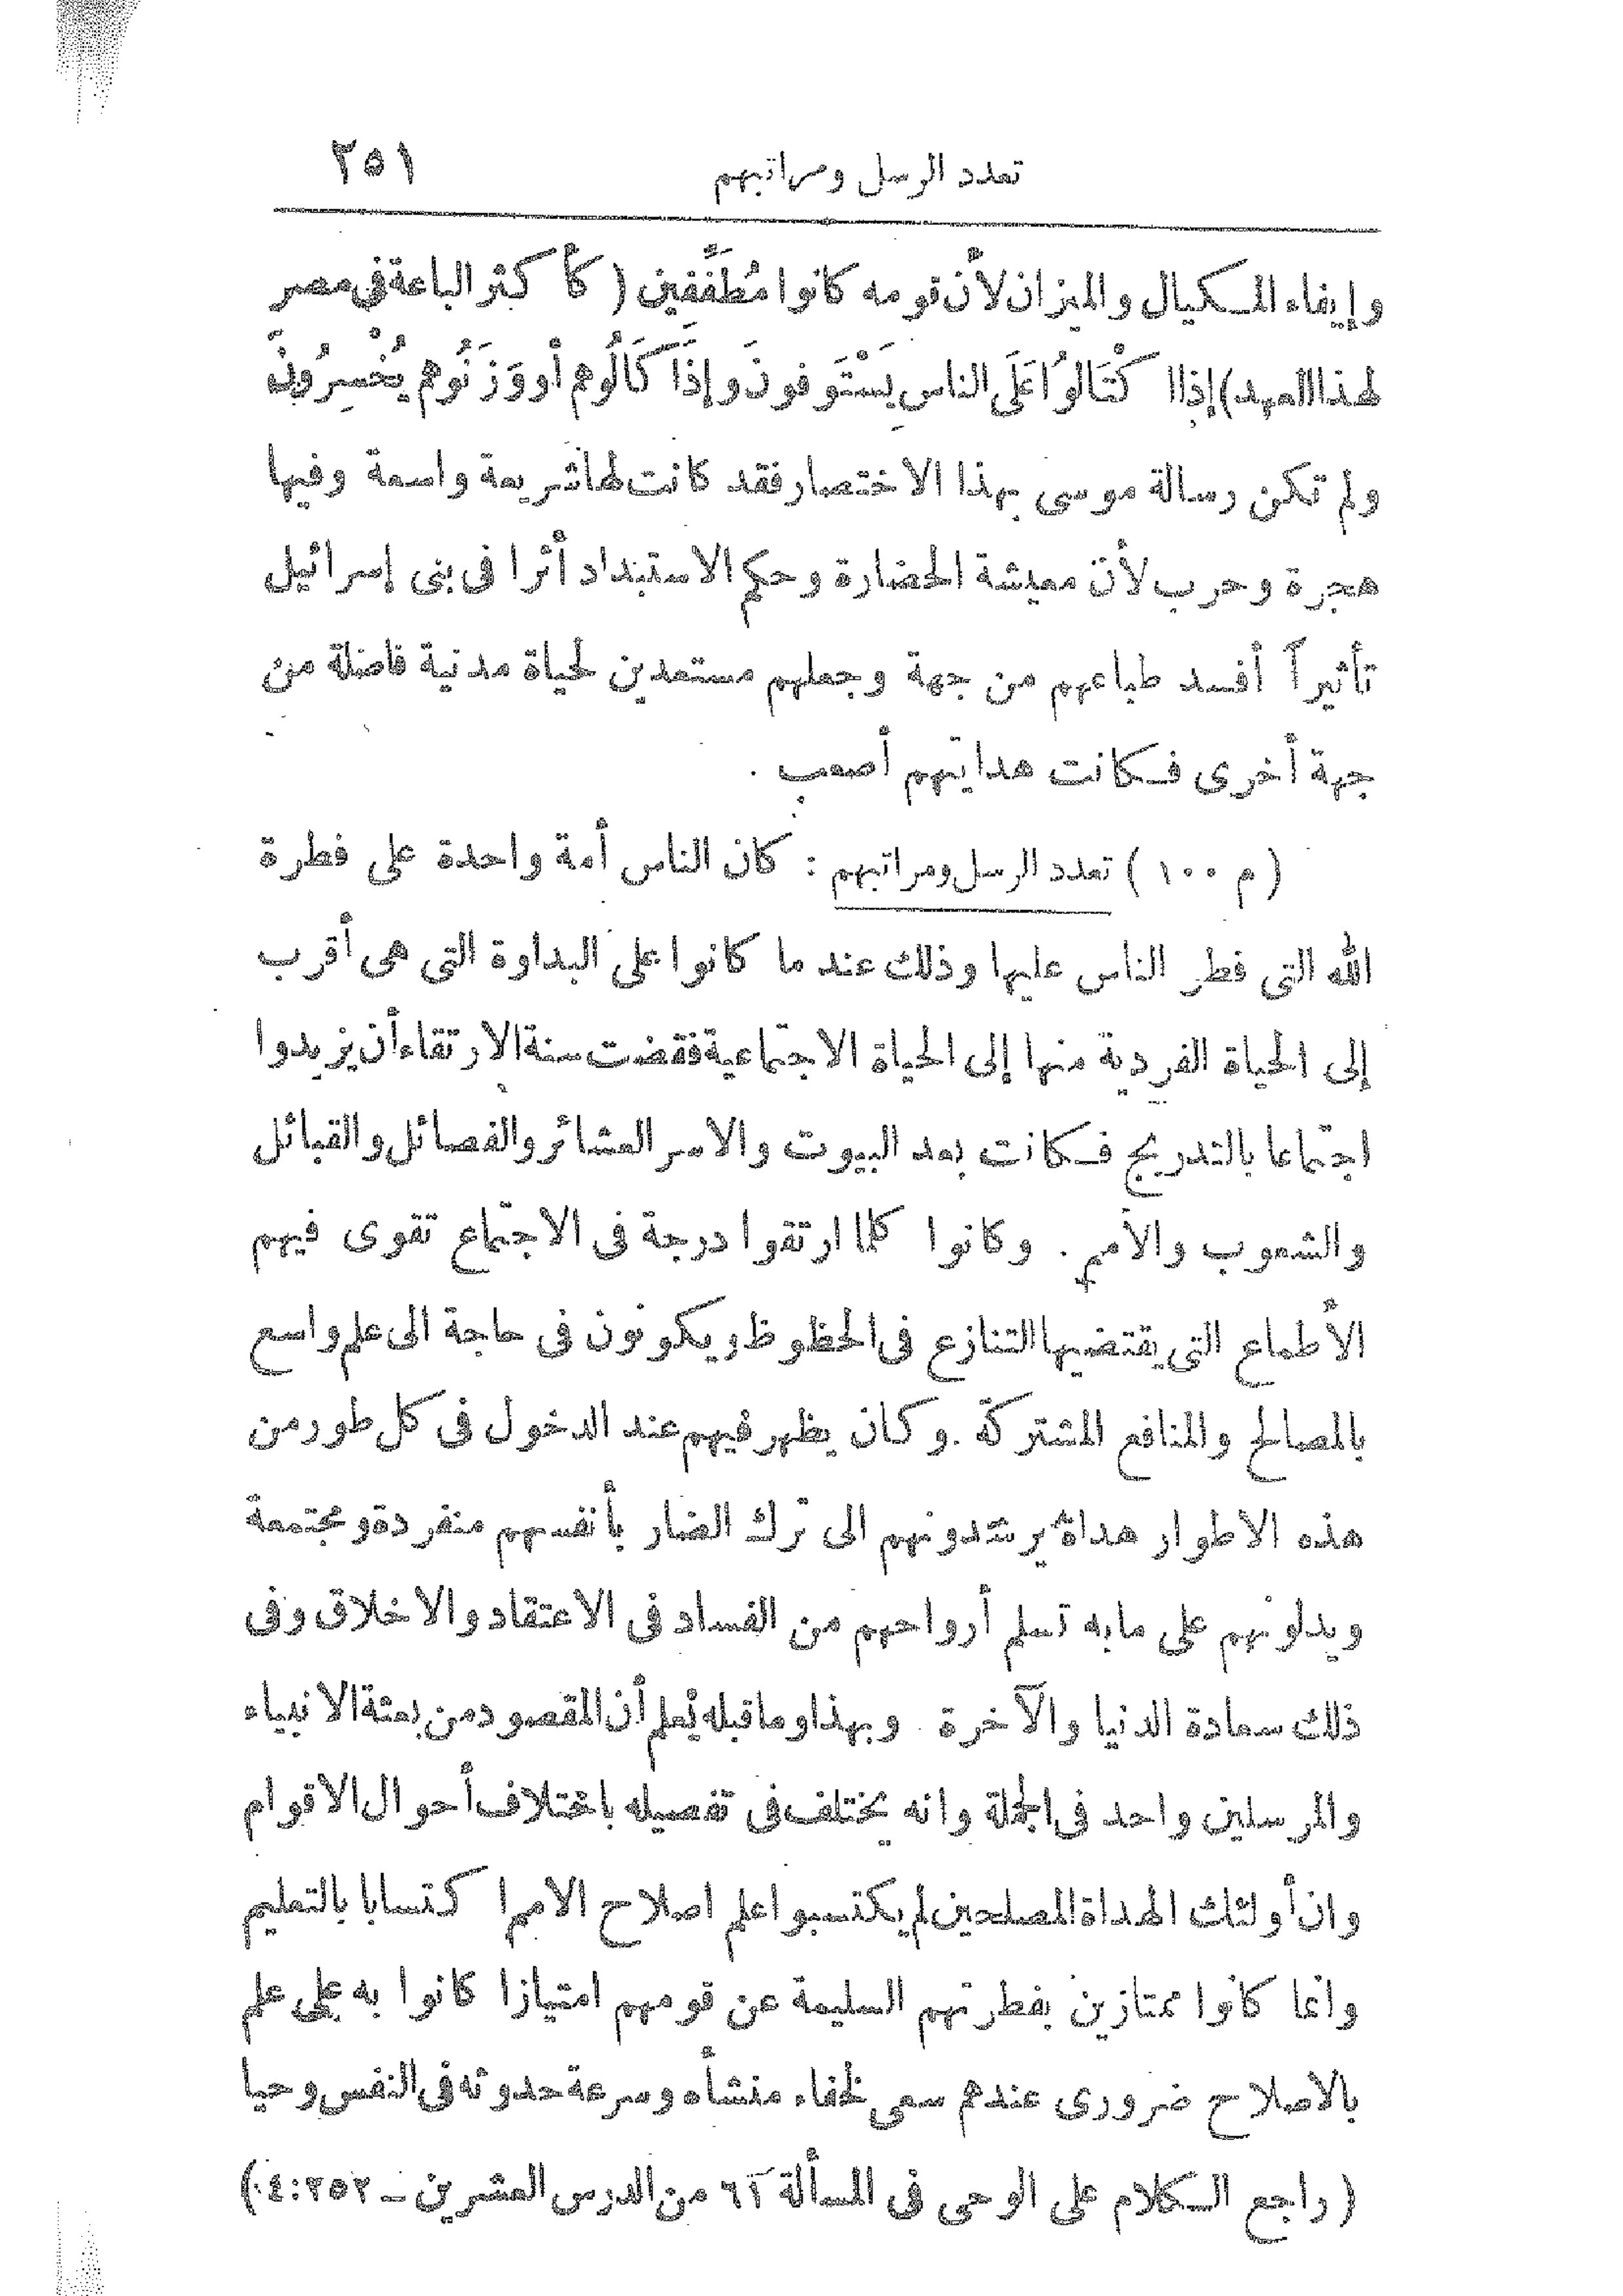 تعدد الرسل ومراتبهم ٢٥١
وإيفاء المكيال والميزان لأن قومه كانوا مُطَفِّفين ( كأكثر الباعة في مصر
لهذا العهد) إذا اكْتَالوُا عَلَى الناس يَسْتَوفونَ وإذَا كَالُوهم أو وَزَنُوهم يُخْسِرُونَ
ولم تكن رسالة موسى بهذا الاختصار فقد كانت لها شريعة واسعة وفيها
هجرة وحرب لأن معيشة الحضارة وحكم الاستبداد أثرا فى بنى إسرائيل
تأثيراً أفسد طباعهم من جهة وجعلهم مستعدين لحياة مدنية فاضلة من
جهة أخرى فكانت هدايتهم أصعب .
( م ١٠٠ ) تعدد الرسل ومراتبهم : كان الناس أمة واحدة على فطرة
الله التى فطر الناس عليها وذلك عند ما كانوا على البداوة التى هى أقرب
إلى الحياة الفردية منها إلى الحياة الاجتماعية فقضت سنة الارتقاء أن يزيدوا
اجتماعا بالتدريج فكانت بعد البيوت والاسر العشائر والفصائل والقبائل
والشعوب والأمم . وكانوا كلما ارتقوا درجة فى الاجتماع تقوى فيهم
الأطماع التى يقتضيها التنازع فى الحظوظ ويكونون فى حاجة الى علم واسع
بالمصالح والمنافع المشتركة . وكان يظهر فيهم عند الدخول فى كل طور من
هذه الاطوار هداة يرشدونهم الى ترك الضار بأنفسهم منفردة ومجتمعة
ويدلونهم على مابه تسلم أرواحهم من الفساد فى الاعتقاد والاخلاق وفى
ذلك سعادة الدنيا والآخرة . وبهذا وما قبله يُعلم أن المقصود من بعثة الانبياء
والمرسلين واحد فى الجملة وانه يختلف فى تفصيله باختلاف أحوال الاقوام
وان أولئك الهداة المصلحين لم يكتسبوا علم اصلاح الامم اكتسابا بالتعليم
وانما كانوا ممتازين بفطرتهم السليمة عن قومهم امتيازا كانوا به على علم
بالاصلاح ضرورى عندهم سمى لخفاء منشأه وسرعة حدوثه فى النفس وحيا
( راجع الكلام على الوحى فى المسألة ٦٢ من الدرس العشرين ــ ٢٥٢ : ٤ )